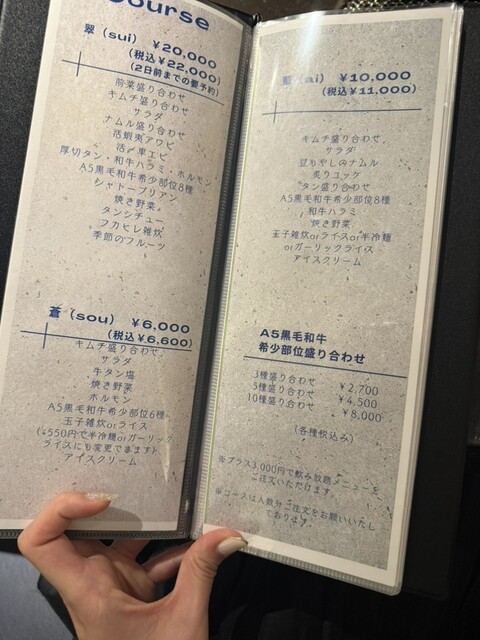 Course
翠（sui） ￥20,000
（税込￥22,000）
（2日前までの要予約）
前菜盛り合わせ
キムチ盛り合わせ
サラダ
ナムル盛り合わせ
活蝦夷アワビ
活〆車エビ
厚切タン・和牛ハラミ・ホルモン
A5黒毛和牛希少部位8種
シャトーブリアン
焼き野菜
タンシチュー
フカヒレ雑炊
季節のフルーツ
蒼（sou） ￥6,000
（税込￥6,600）
キムチ盛り合わせ
サラダ
牛タン塩
焼き野菜
ホルモン
A5黒毛和牛希少部位6種
玉子雑炊orライス
（+550円で半冷麺orガーリック
ライスにも変更できます）
アイスクリーム
（ai） ￥10,000
（税込￥11,000）
キムチ盛り合わせ
サラダ
豆もやしのナムル
炙りユッケ
タン盛り合わせ
A5黒毛和牛希少部位8種
和牛ハラミ
焼き野菜
玉子雑炊orライスor半冷麺
orガーリックライス
アイスクリーム
A5黒毛和牛
希少部位盛り合わせ
3種盛り合わせ ￥2,700
5種盛り合わせ ￥4,500
10種盛り合わせ ￥8,000
（各種税込み）
※プラス3,000円で飲み放題メニューを
ご注文いただけます。
※コースは人数分ご注文をお願いいたし
ております。